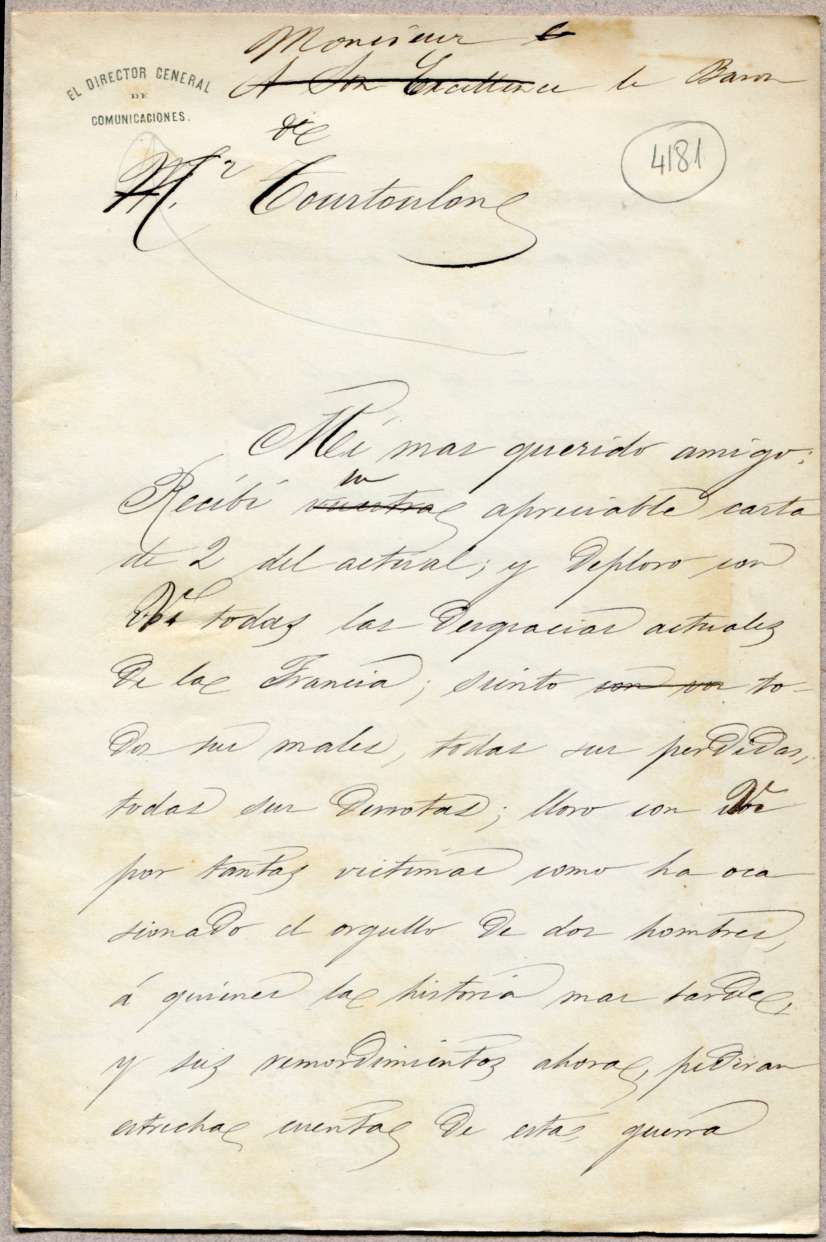 EL DIRECTOR GENERAL
DE
COMUNICACIONES.
Monsieur le
A Son Excellence le Baron
de
4181
Mr. Tourtoulon
Mi mas querido amigo:
su
Recibí vuestra apreciable carta
de 2 del actual; y deploro con
V. todas las desgracias actuales
de la Francia; siento con vos to-
dos sus males, todas sus perdidas,
todas sus derrotas; lloro con V.
por tantas victimas como ha oca
sionado el orgullo de dos hombres,
á quienes la historia mas tarde,
y sus remordimientos ahora, pediran
estrecha cuenta de esta guerra